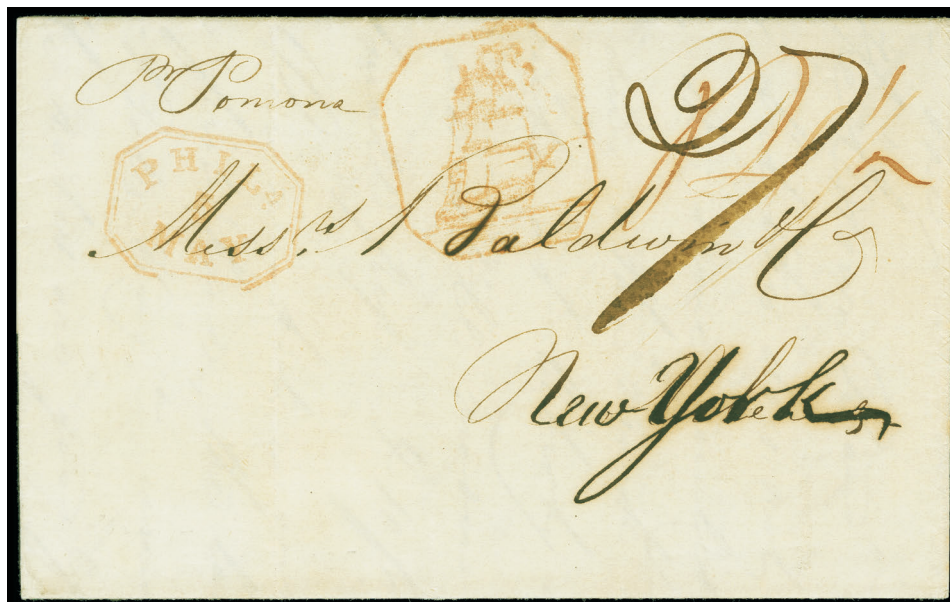 Pr Pomona
PHILA
MAY
27
12 1/2
Messrs Baldwin & Co
New York